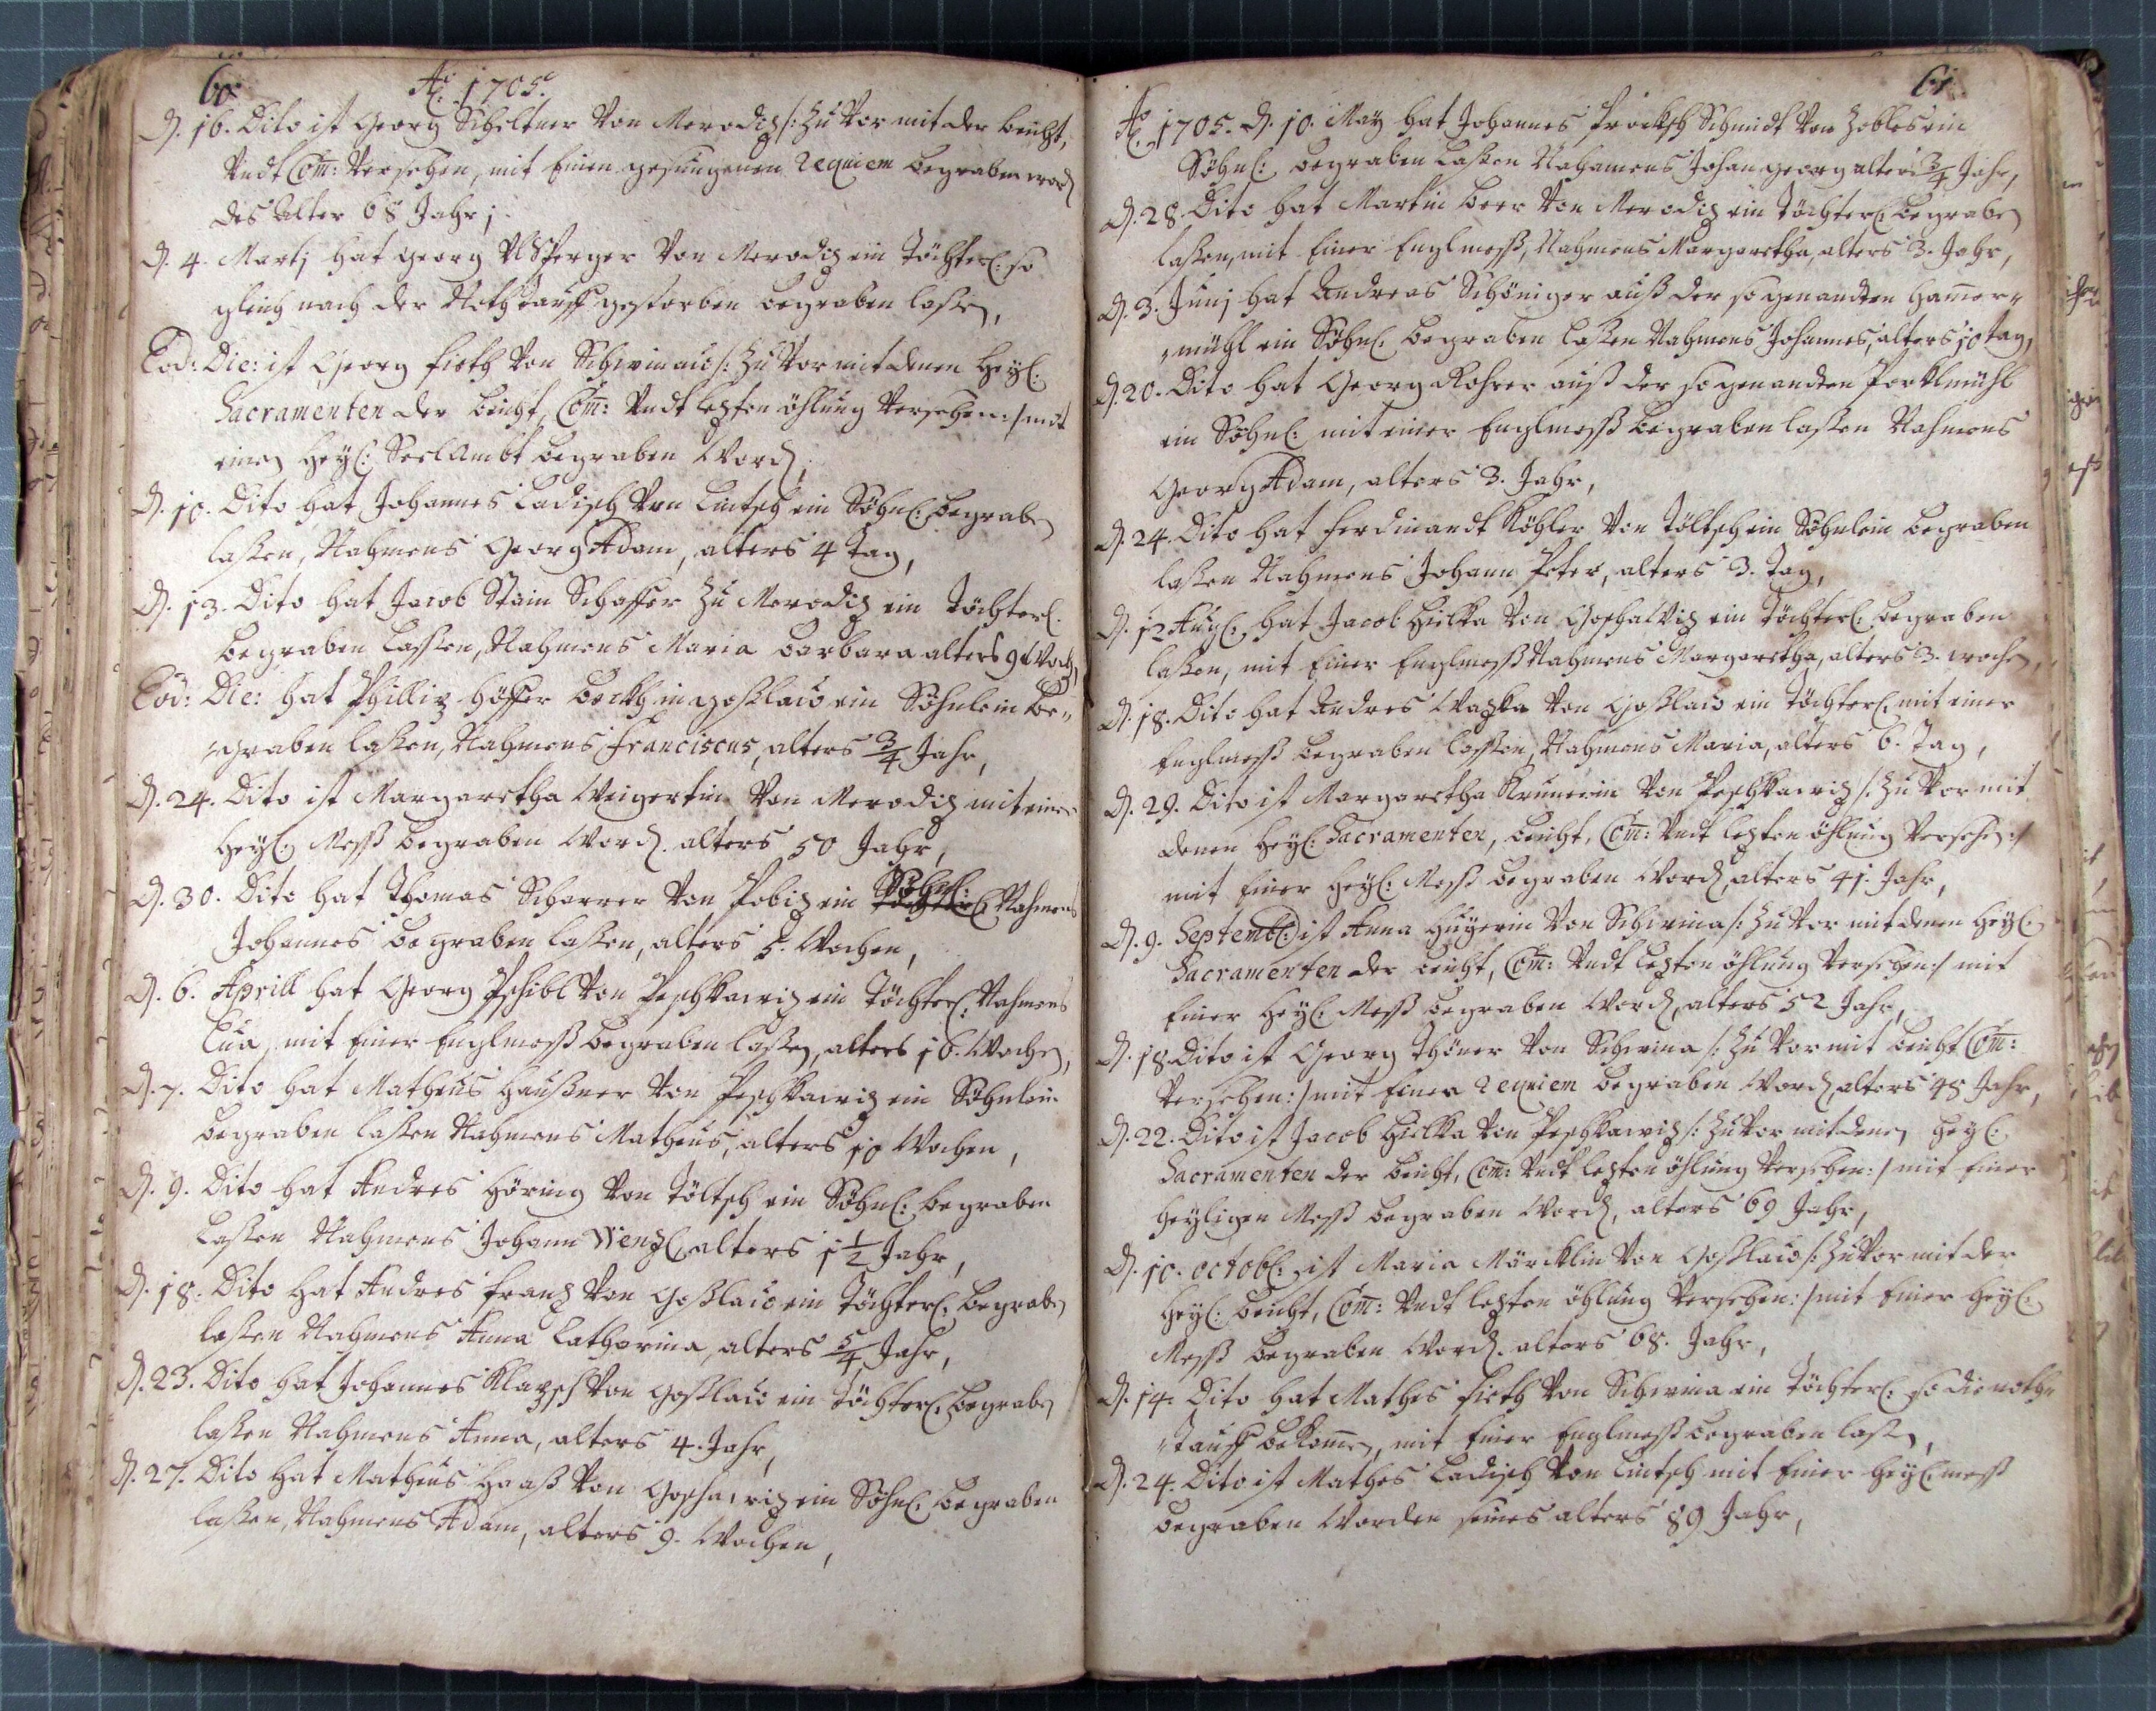 60
Aō. 1705.
D. 16. Dito ist Georg Scheltner von Merodiz /: Zuvor mit der beicht,
Undt Com̄: Versehen, mit Einen gesungenen Requiem begraben word
des alter 68 Jahr;
D. 4. Martj hat Georg Ulsperger von Merodiz ein Töchterl: so
gleich nach der Nothtauff gestorben begraben lassen,
Eod: Die: ist Georg fieth von Schwinau /: Zuvor mit denen Heyl:
Sacramenten der beicht, Com̄: Undt lezten öhlung Versehen :/ mit
einen Heyl: SeelAmbt begraben Word,
D. 10. Dito hat Johannes Ladisch von Lintsch ein Söhnl: begraben
lassen, Nahmens Georg Adam, alters 4 Tag,
D. 13. Dito hat Jacob Stain Schaffer Zu Merodiz ein Töchterl.
begraben lassen, Nahmens Maria Barbara alters 9 Woch,
Eod: Die: hat Phillip Höffer beckh in Goßlau ein Söhnlein be„
„graben lassen, Nahmens Franciscus, alters 3/4 Jahr,
D. 24. Dito ist Margaretha Weigertin von Merodiz mit einer
Heyl: Mess begraben Word. alters 50 Jahr,
D. 30. Dito hat Thomas Scharrer von Pobiz ein Söhnl: Nahmens
Johannes begraben lassen, alters 5. Wochen,
D. 6. Aprill hat Georg Pschibl von Peschkawiz ein Töchterl: Nahmens
Eua, mit Einer Englmess begraben lassen, alters 16. Wochen,
D. 7. Dito hat Matheus Haußner von Peschkawiz ein Söhnlein
begraben lassen Nahmens Matheus, alters 10 Wochen,
D. 9. Dito hat Andres Höring von Töltsch ein Söhnl: begraben
Lassen Nahmens Johann Wenzl, alters 1 1/2 Jahr,
D. 18. Dito hat Andres Franz von Goßlau ein Töchterl: begraben
lassen Nahmens Anna Catharina, alters 5/4 Jahr,
D. 23. Dito hat Johannes Klazsch von Goßlau ein Töchterl: begraben
lassen Nahmens Anna, alters 4. Jahr,
D. 27. Dito hat Matheus Haaß von Goschawiz ein Söhnl: begraben
lassen, Nahmens Adam, alters 9. Wochen,
61
Aō. 1705. D. 10. May hat Johannes Procksch Schmidt von Zobles ein
Söhnl: begraben Lassen Nahmens Johan Georg alters 3/4 Jahr,
D. 28. Dito hat Martin beer von Merodiz ein Töchterl: begraben
lassen, mit Einer Englmess, Nahmens Margaretha, alters 3. Jahr,
D. 3. Junj hat Andreas Schöniger auß der so genandten Ham̄er„
„mühl ein Söhnl. begraben lassen Nahmens Johannes, alters 10 tag,
D. 20. Dito hat Georg Rohrer auß der so genandten Porklmühl
ein Söhnl: mit einer Englmess begraben lassen Nahmens
Georg Adam, alters 3. Jahr,
D. 24. Dito hat Ferdinandt Köhler von Töltsch ein Söhnlein begraben
lassen Nahmens Johann Peter, alters 3. Tag,
D. 12 Aug: hat Jacob Hielka von Goschawiz ein Töchterl: begraben
lassen, mit Einer Englmess Nahmens Margaretha, alters 3. wochen,
D. 18. Dito hat Andres Wazka von Goßlau ein Töchterl: mit einer
Englmess begraben lassen, Nahmens Maria, alters 6. Tag,
D. 29. Dito ist Margaretha von Peschkawiz /: Zuvor mit
denen Heyl: Sacramenten, beicht, Com̄: Undt lezten öhlung Versehen :/
mit Einer Heyl: Mess begraben Word, alters 41. Jahr,
D. 9. Septembl: ist Anna Hügerin von Schwina /: Zuvor mit denen Heyl:
Sacramenten der beicht, Com̄: Undt lezten öhlung Versehen :/ mit
Einer Heyl: Mess begraben Word, alters 52 Jahr,
D. 18 Dito ist Georg Thöner von Schwina /: Zuvor mit beicht Com̄:
Versehen :/ mit Einen Requiem begraben Word, alters 48 Jahr,
D. 22. Dito ist Jacob Hielka von Peschkawiz /: Zuvor mit denen Heyl:
Sacramenten der beicht, Com̄: Undt lezten öhlung Versehen :/ mit Einer
Heyligen Mess begraben Word, alters 69 Jahr,
D. 10. octobl: ist Maria Märcklin von Goßlau /: Zuvor mit der
Heyl: beicht, Com̄: Undt lezten öhlung Versehen :/ mit Einer Heyl:
Mess begraben Word. alters 68. Jahr,
D. 14. Dito hat Mathes fieth von Schwina ein Töchterl: so die noth„
„Tauff bekom̄en, mit Einer Englmess begraben lassen,
D. 24. Dito ist Mathes Ladisch von Lintsch mit Einer Heyl: mess
begraben Worden seines alters 89 Jahr,